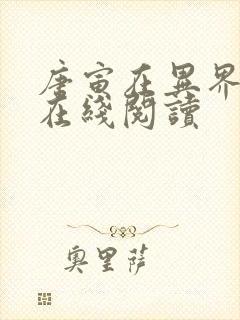 唐寅在异界
在綫閱讀
奧里薩